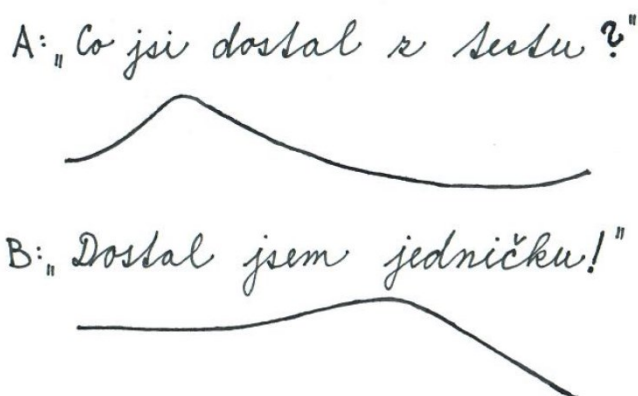 A: „Co jsi dostal z testu?"
B: „Dostal jsem jedničku!"